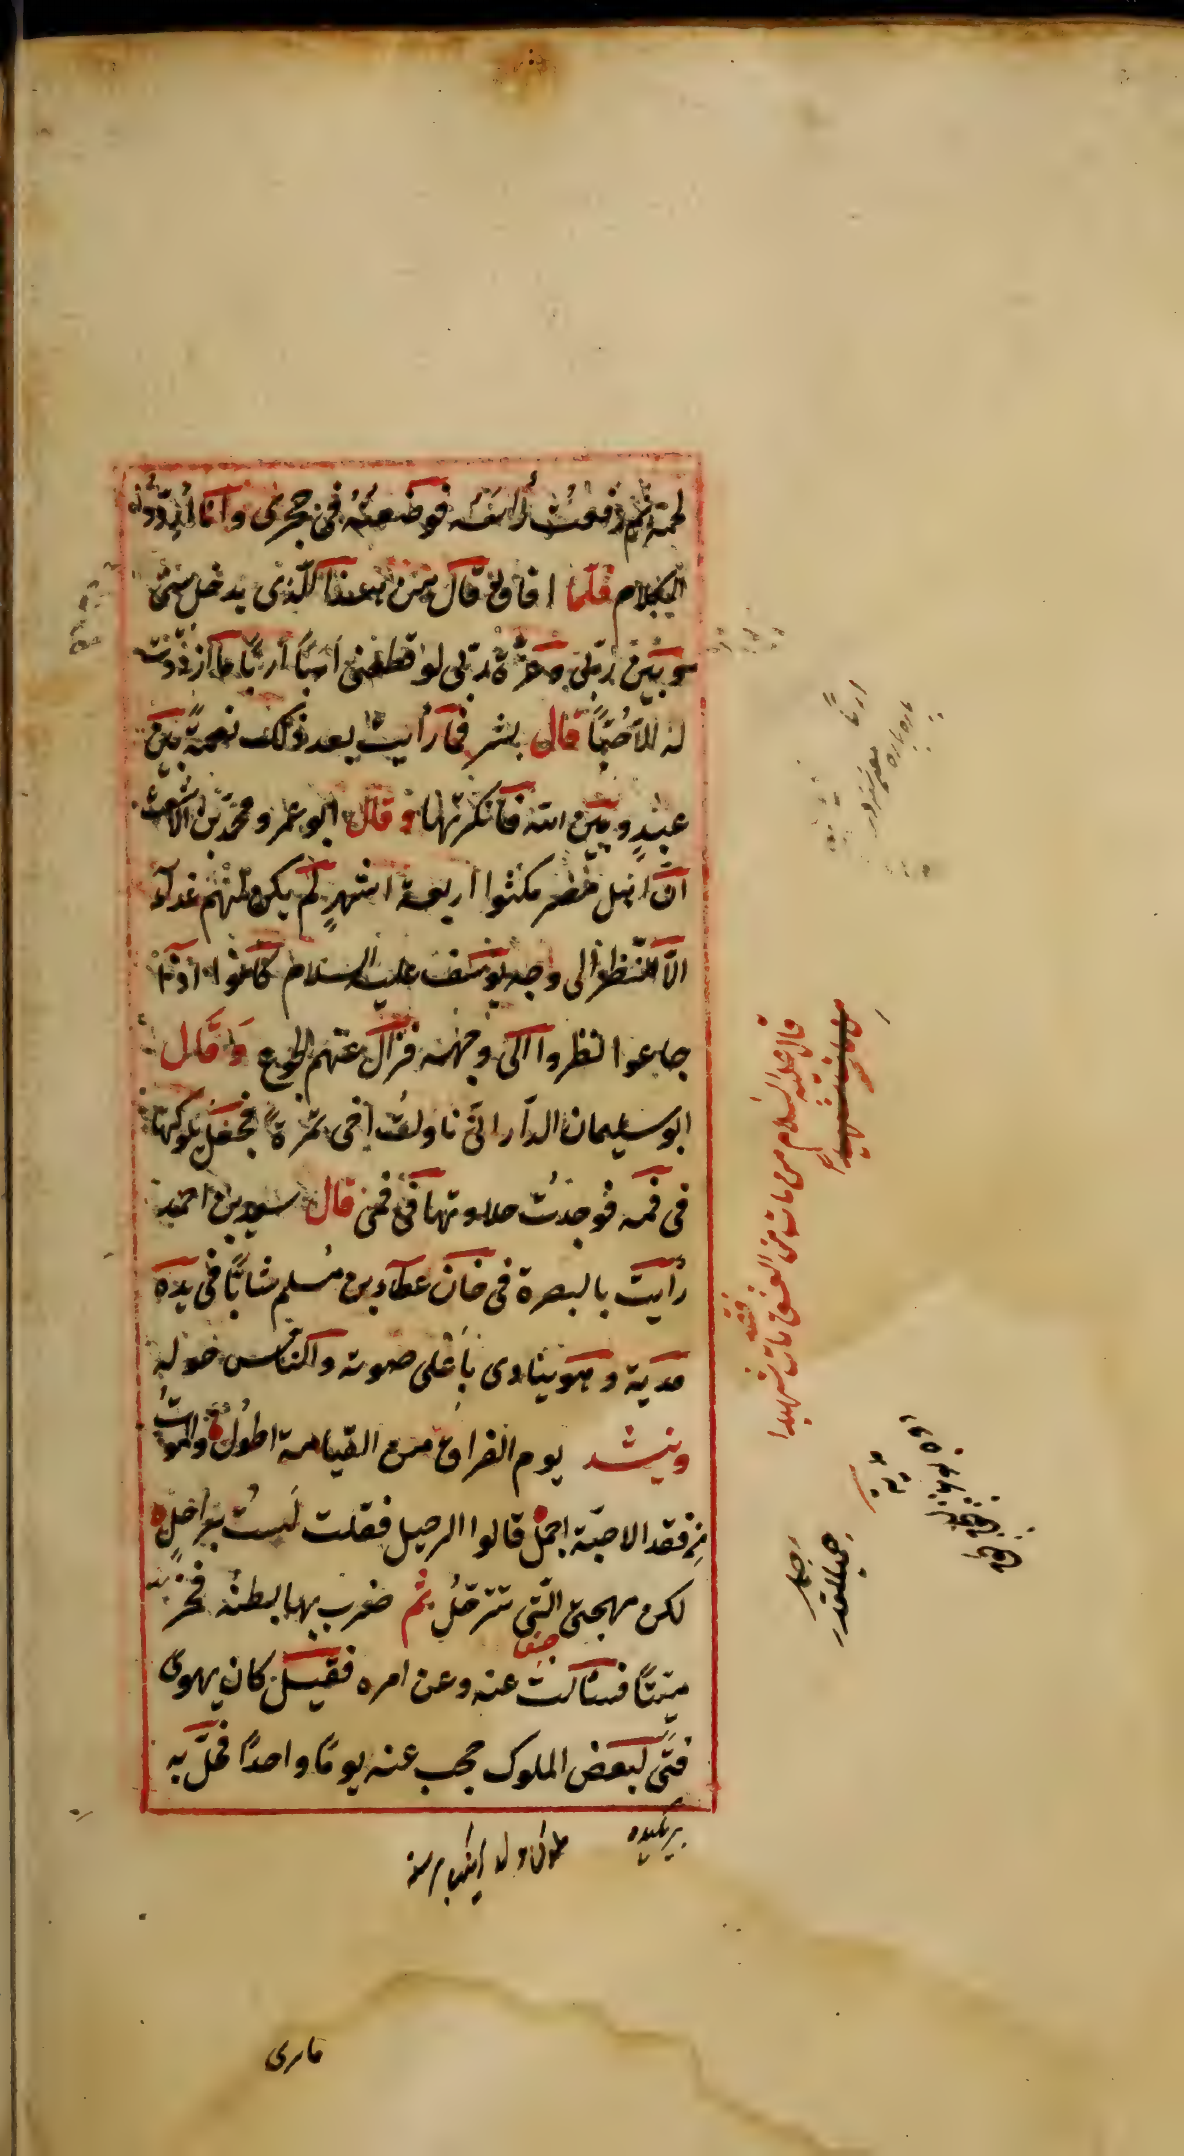 لحمه ثم رفعت رأسه فوضعته في حجري وانا اردد
الكلام فلما افاق قال من هذا الذى يدخل بينى
و بين ربى وعزة ربى لو قطعنى اربًا اربًا ما ازددت
له الا حُبًّا قال بشر فما رأيت بعد ذلك نعمةً بين
عبدٍ و بين الله فأنكرتها و قال ابو عمرو محمد بن الاشعث
انّ اهل مصر مكثوا اربعة اشهرٍ لم يكن لهم غداء
الّا النظر الى وجه يوسف عليه السلام كانوا اذا
جاعوا نظروا الى وجهه فزال عنهم الجوع وَقَال
ابو سليمان الدّاراني ناولت اخى تمرةً فجعل يلوكها
فى فمه فوجدت حلاوتها فى فمى قال سويد بن احمد
رأيت بالبصرة فى خان عطاء بن مُسلم شابًّا فى يده
مدية و هو ينادى بأعلى صوته والناس حوله
وينشد يوم الفراق من القيامة اطول والموت
من فقد الاحبّة اجمل قالوا الرحيل فقلت لست براحلٍ
لكن مهجتى الّتى تترحّلُ ثم ضرب بها بطنه فخرّ
ميّتًا فسألت عنه وعن امره فقيل كان يهوى
فتًى لبعض الملوك حجب عنه يومًا واحدًا فحلّ به
قال عليه السلام من مات من العشق فقد مات شهيدا